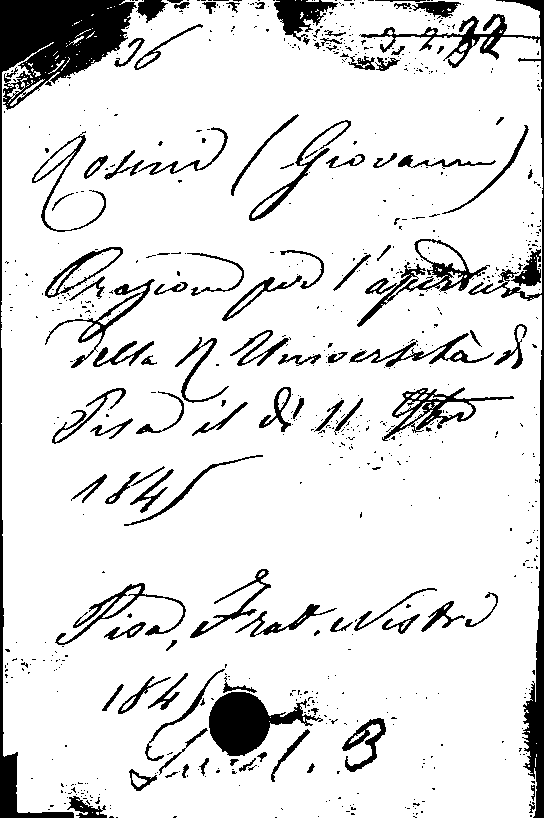 36 3. 2. 32
Rosini (Giovanni)
Orazione per l'apertura
della R. Università di
Pisa il dì 11 9bre
1845
Pisa, Frat. Nistri
1845
B